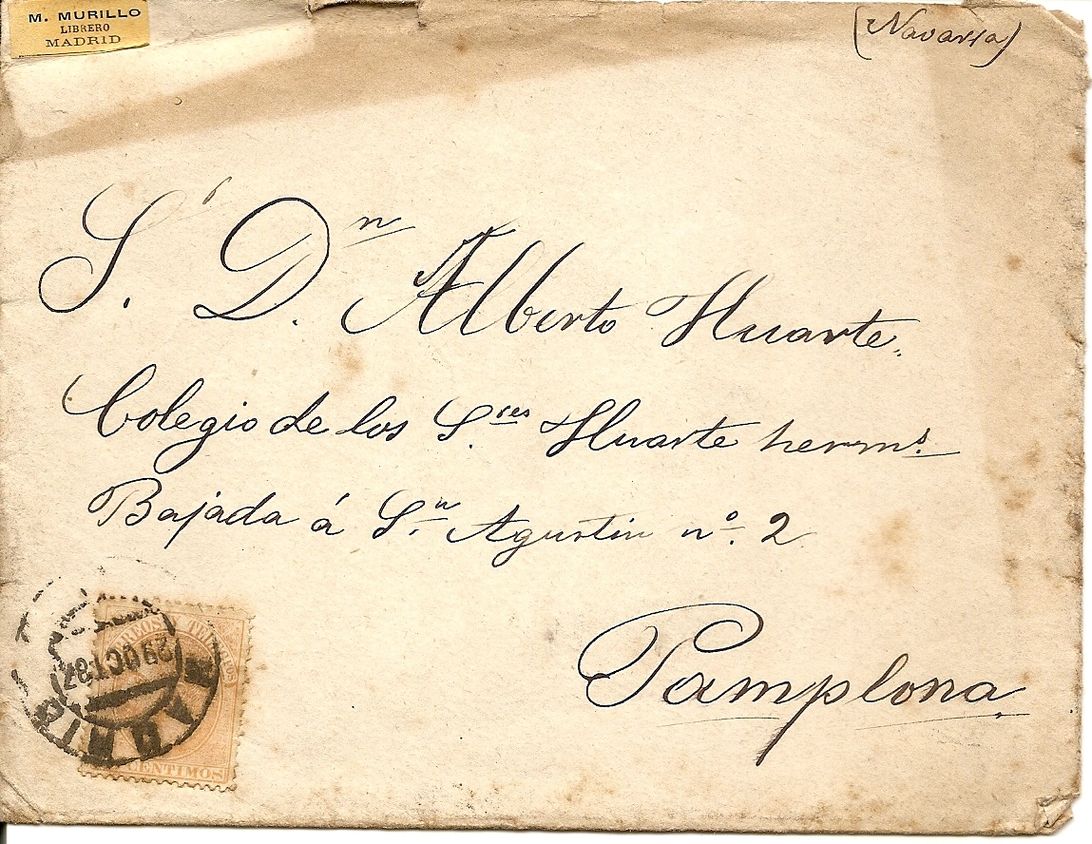 M. MURILLO
LIBRERO
MADRID
(Navarra)
S. D.n Alberto Huarte.
Colegio de los S.res Huarte herms.
Bajada á S.n Agustin nº. 2
Pamplona.
CORREOS Y TELEGRAFOS
29 OCT 87
MADRID
CENTIMOS